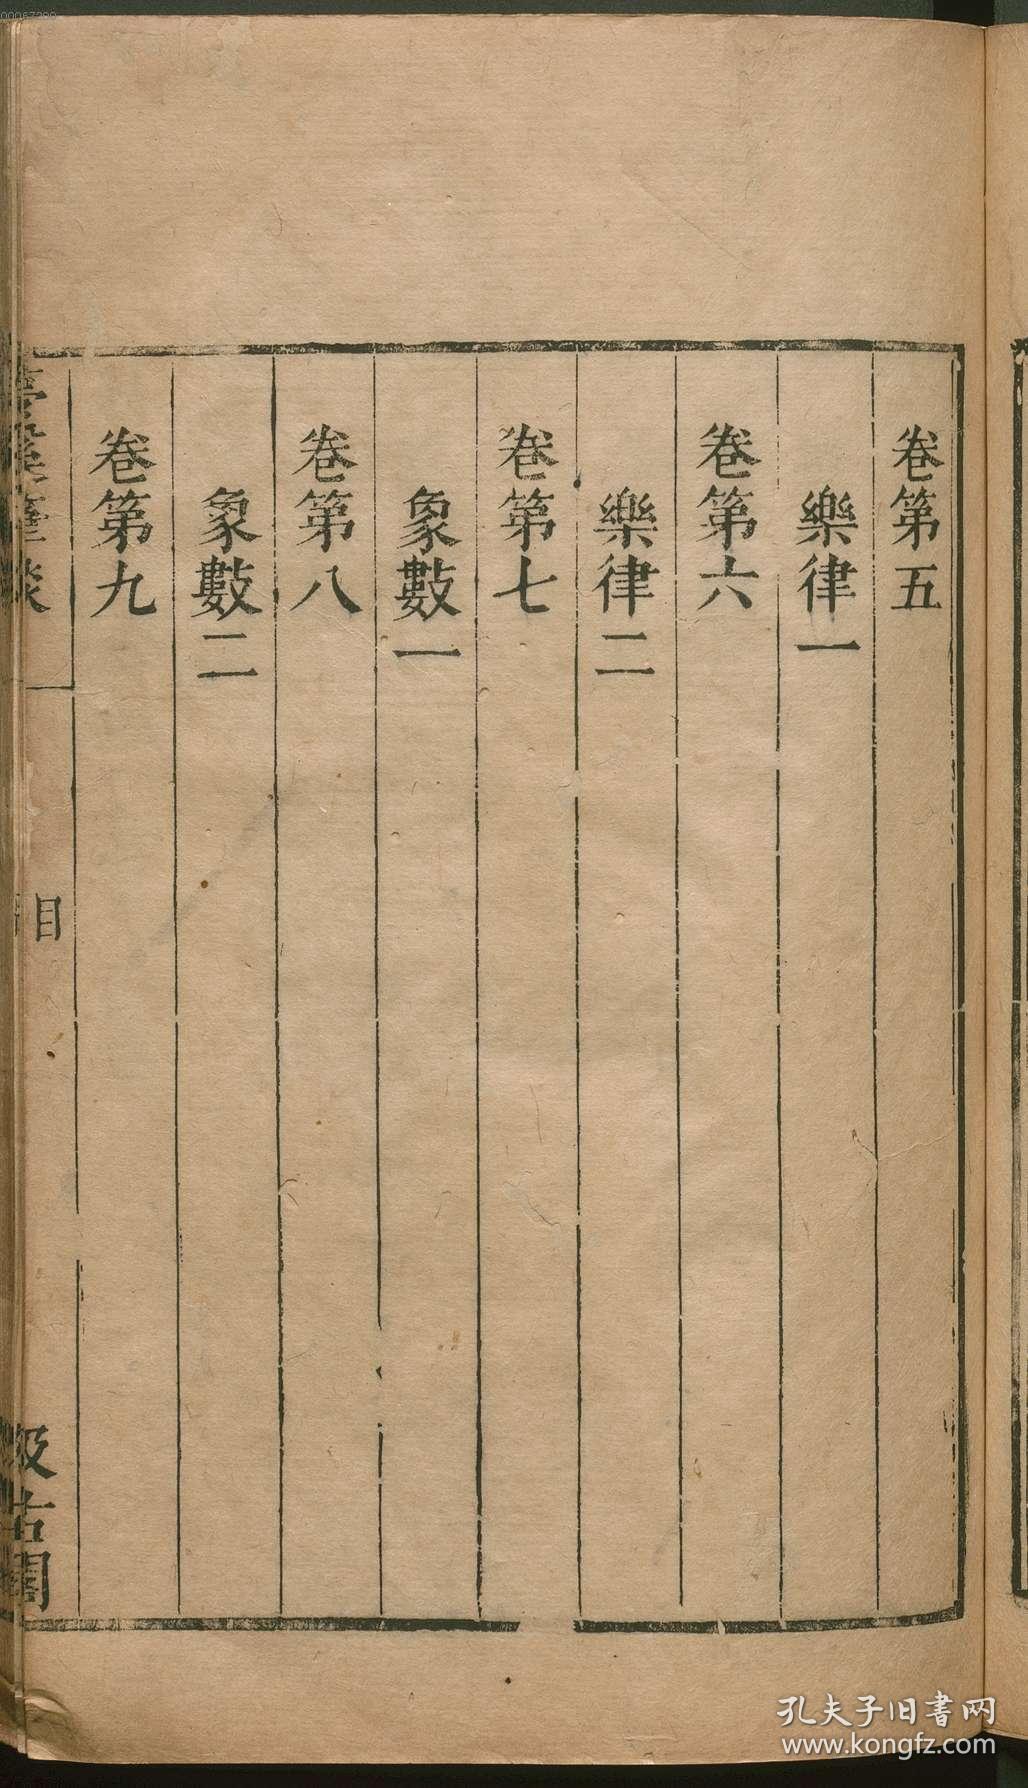 卷第五
樂律一
卷第六
樂律二
卷第七
象數一
卷第八
象數二
卷第九
夢溪筆談
目
汲古閣
孔夫子旧书网
www.kongfz.com